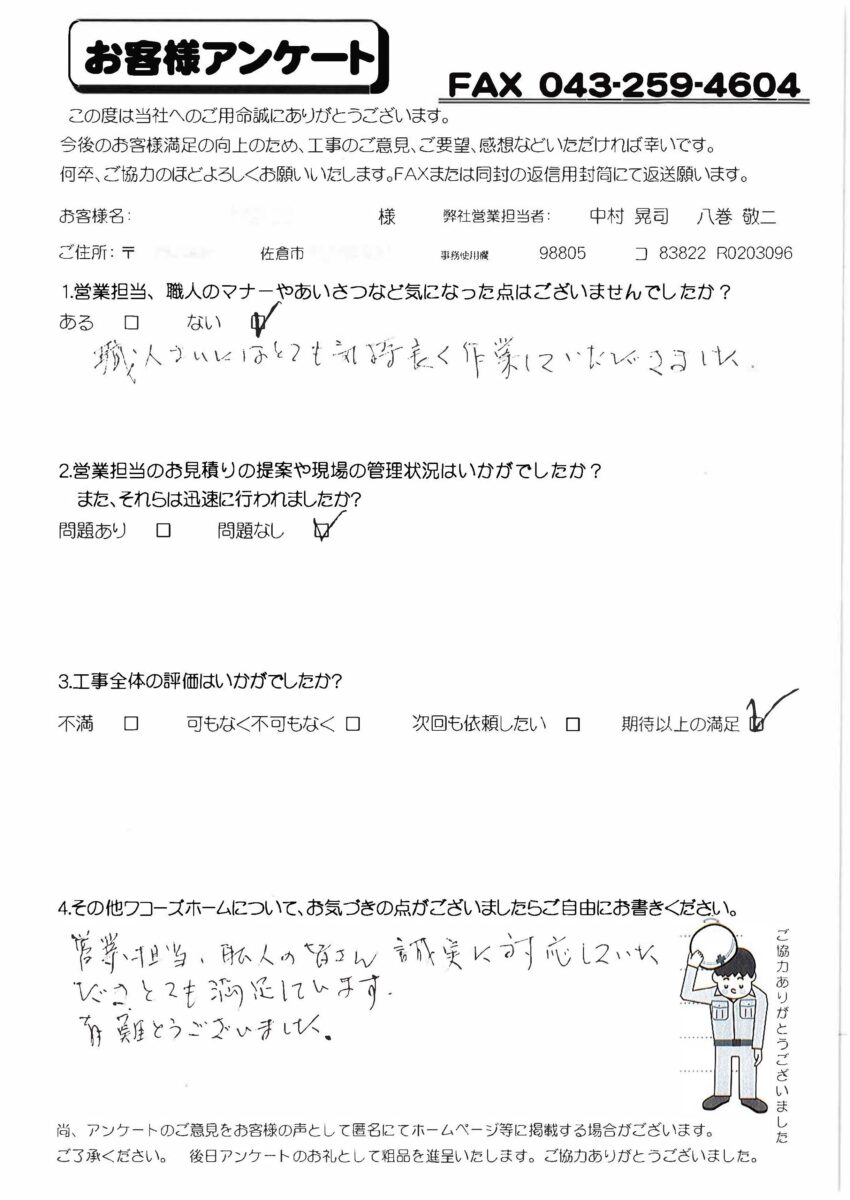 お客様アンケート
FAX 043-259-4604
この度は当社へのご用命誠にありがとうございます。
今後のお客様満足の向上のため、工事のご意見、ご要望、感想などいただければ幸いです。
何卒、ご協力のほどよろしくお願いいたします。FAXまたは同封の返信用封筒にて返送願います。
お客様名: 様 弊社営業担当者: 中村 晃司 八巻 敬二
ご住所:〒 佐倉市 事務使用欄 98805 コ 83822 R0203096
1.営業担当、職人のマナーやあいさつなど気になった点はございませんでしたか?
ある □ ない ☑
職人さんにはとても気持良く作業していただきました.
2.営業担当のお見積りの提案や現場の管理状況はいかがでしたか?
また、それらは迅速に行われましたか?
問題あり □ 問題なし ☑
3.工事全体の評価はいかがでしたか?
不満 □ 可もなく不可もなく □ 次回も依頼したい □ 期待以上の満足 ☑
4.その他ワコーズホームについて、お気づきの点がございましたらご自由にお書きください。
営業担当、職人の皆さん 誠実に対応していた
だきとても満足しています.
有難とうございました。
ご協力ありがとうございました
尚、アンケートのご意見をお客様の声として匿名にてホームページ等に掲載する場合がございます。
ご了承ください。 後日アンケートのお礼として粗品を進呈いたします。ご協力ありがとうございました。